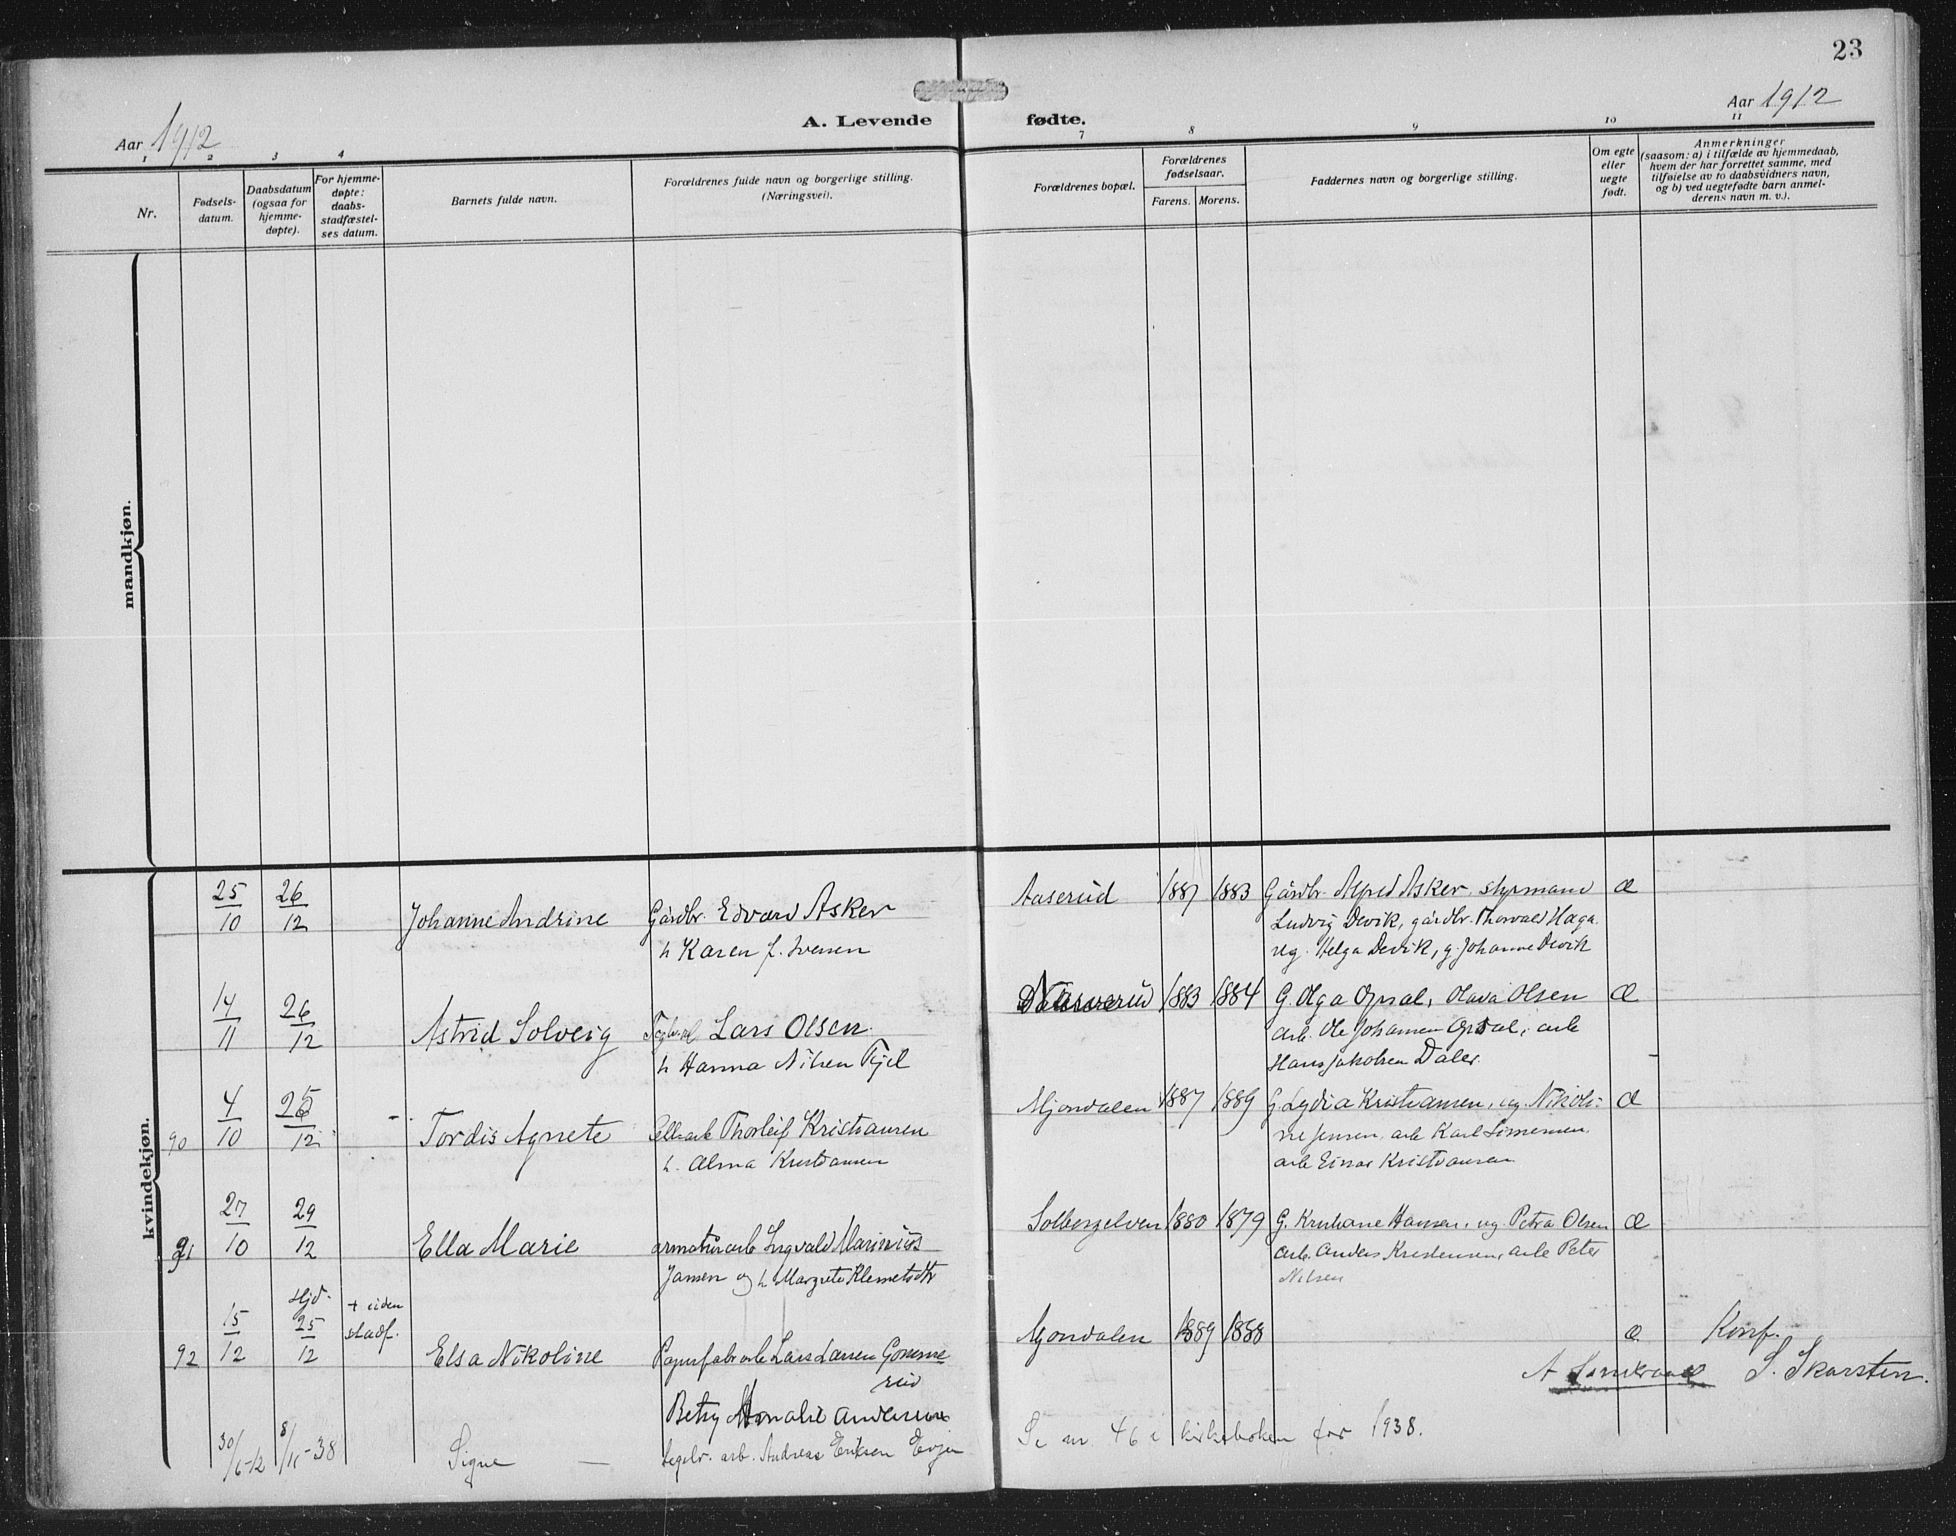 23
Aar 1912
A. Levende fødte.
Aar 1912
1 2 3 4 7 8 9 10 11
Nr.
Fødsels-
datum.
Daabsdatum
(ogsaa for
hjemme-
døpte).
For hjemme-
døpte:
daabs-
stadfæstel-
ses datum.
Barnets fulde navn.
Forældrenes fulde navn og borgerlige stilling.
(Næringsvei).
Forældrenes bopæl.
Forældrenes
fødselsaar.
Farens. Morens.
Faddernes navn og borgerlige stilling.
Om egte
eller
uegte
født.
Anmerkninger
(saasom: a) i tilfælde av hjemmedaab,
hvem der har forrettet samme, med
tilføielse av to daabsvidners navn,
og b) ved uegtefødte barn anmel-
derens navn m. v.).
mandkjøn.
kvindekjøn.
25/10 26/12 Johanne Andrine Gårdbr. Edvard Asker
h Karen f. Iversen
Aaserud 1887 1883 Gårdbr. Alfred Asker, styrmand Æ
Ludvig Devik, gårdbr. Thorvald Haga
ug. Helga Devik, g. Johanne Devik
14/11 26/12 Astrid Solveig Lars Olsen
h Hanna Nilsen Fjel
1883 1884 G. Olga Opsal, Olava Olsen Æ
arb. Ole Johansen Opsal, arb
Hans Jakobsen Daler.
90 4/10 26/12 - Tordis Agnete Cellarb Thorleif Kristiansen
h. Alma Kristiansen
Mjøndalen 1887 1889 G Lydia Kristiansen, ug. Nikoli- Æ
ne Jensen, arb Karl Simensen
arb Einar Kristiansen
91 27/10 29/12 Ella Marie armaturarb Ingvald Marinius
Jansen og h Margrete Klemetsdtr
Solbergelven 1880 1879 G. Kristiane Hansen, ug Petra Olsen Æ
arb. Anders Kristensen, arb Peter
Nilsen
92 15/12 Hjd. 25/12 + uden
stadf. Elsa Nikoline Papirfabrarb Lars Larsen Gomme-
rud
Betsy Amalie Andersen
Mjøndalen 1889 1888 Æ Konf.
S. Skarsten.
30/6-12 8/11-38 Signe — arb. Andreas Eriksen Evjen
Se nr. 46 i kirkeboken for 1938.